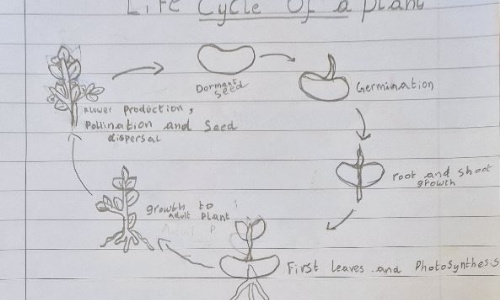 Life Cycle Of a plant
Dormant
seed
Germination
flower production,
Pollination and Seed
dispersal
root and shoot
growth
growth to
adult plant
First leaves and Photosynthesis